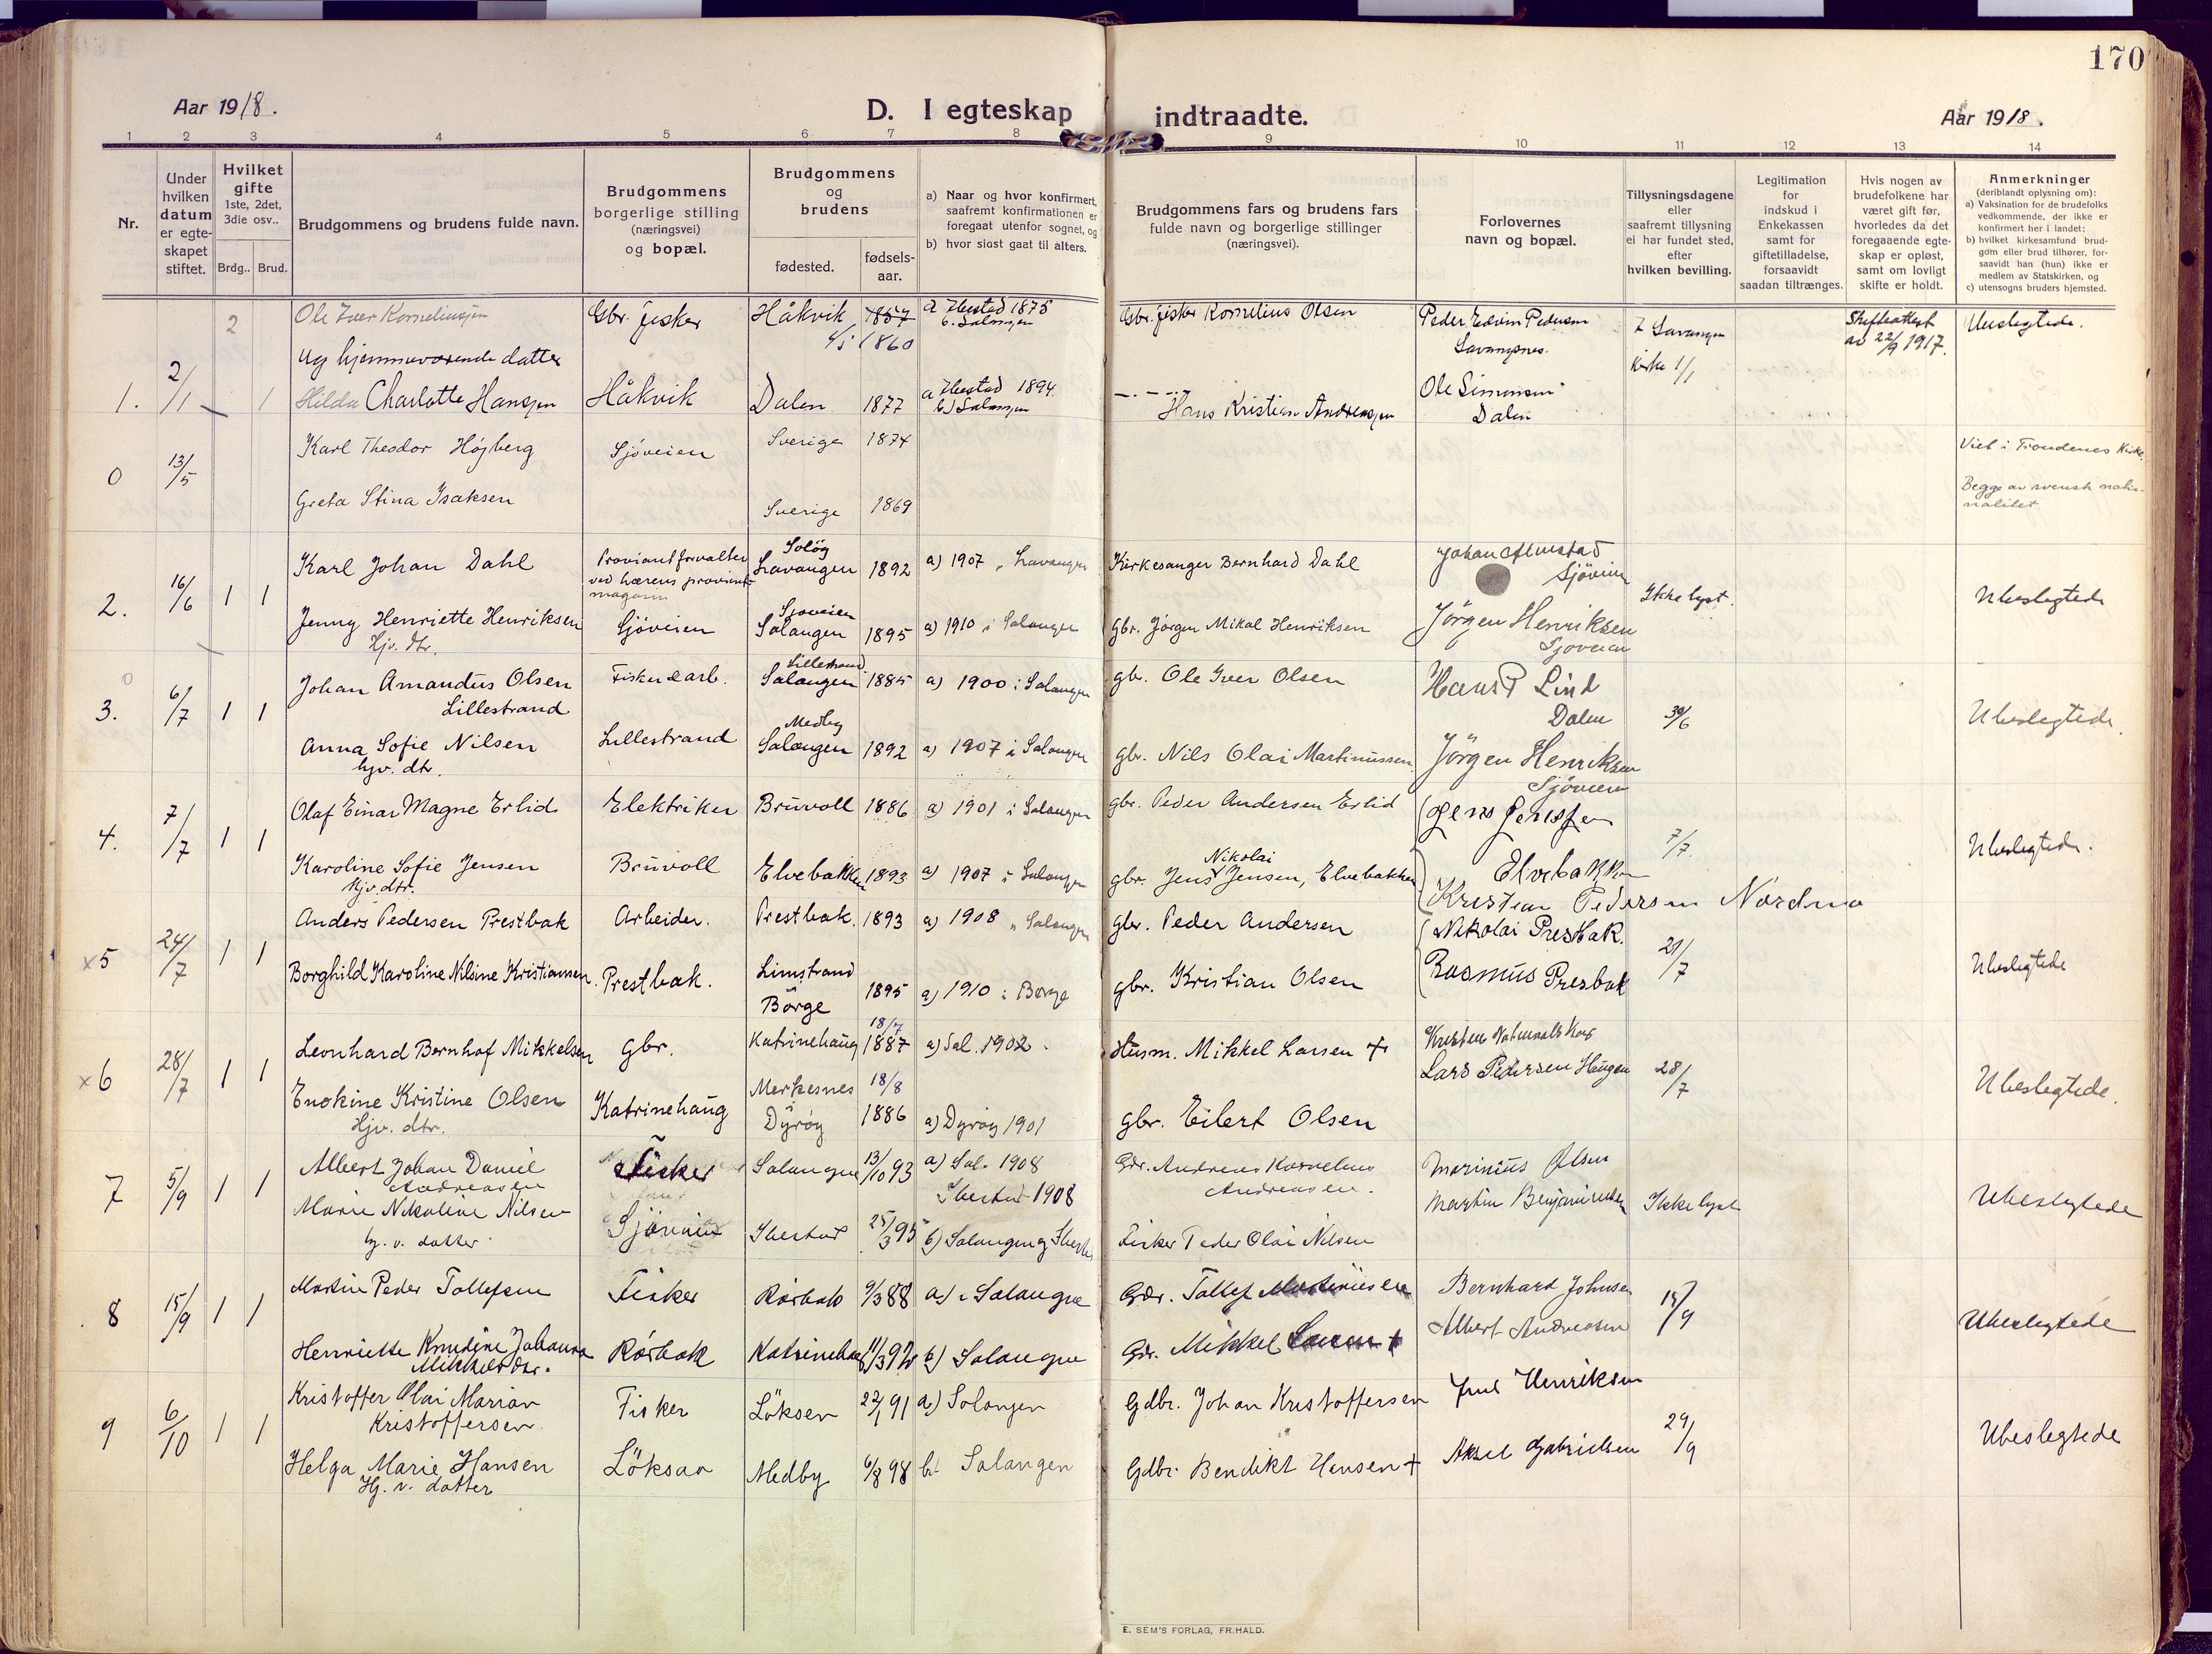 170
Aar 1918.
D. I egteskap indtraadte.
Aar 1918.
1 2 3 4 5 6 7 8 9 10 11 12 13 14
Nr.
Under hvilken datum er egteskapet stiftet.
Hvilket gifte 1ste, 2det, 3die osv..
Brdg.. Brud.
Brudgommens og brudens fulde navn.
Brudgommens borgerlige stilling (næringsvei) og bopæl.
Brudgommens og brudens
fødested.
fødsels-aar.
a) Naar og hvor konfirmert, saafremt konfirmationen er foregaat utenfor sognet, og
b) hvor sidst gaat til alters.
Brudgommens fars og brudens fars fulde navn og borgerlige stillinger (næringsvei).
Forlovernes navn og bopæl.
Tillysningsdagene eller saafremt tillysning ei har fundet sted, efter hvilken bevilling.
Legitimation for indskud i Enkekassen samt for giftetilladelse, forsaavidt saadan tiltrænges.
Hvis nogen av brudefolkene har været gift før, hvorledes da det foregaaende egteskap er opløst, samt om lovligt skifte er holdt.
Anmerkninger (deriblandt oplysning om):
a) Vaksination for de brudefolks vedkommende, der ikke er konfirmert her i landet;
b) hvilket kirkesamfund brudgom eller brud tilhører, forsaavidt han (hun) ikke er medlem av Statskirken, og
c) utensogns bruders hjemsted.
2 Ole Iver Korneliussen Gbr. fisker Håkvik 1857 a Ibestad 1875 Gbr. fisker Kornelius Olsen Peder Edvin Pedersen Skifteattest Ubeslegtede.
4/5 1860 b. Salangen Lavangsnes. Kirke 1/1 av 22/9 1917.
ug hjemmeværende datter
1. 2/1 1 Hilda Charlotte Hanssen Håkvik Dalen 1877 a Ibestad 1894 Hans Kristian Andreassen Ole Simonsen
b) Salangen Dalen
0 13/5 Karl Theodor Højberg Sjöveien Sverige 1874 Viet i Trondenes Kirke.
Greta Stina Isaksen Sverige 1869 Begge av svensk natio-
nalitet.
2. 16/6 1 1 Karl Johan Dahl Proviantforvalter Solög Lavangen 1892 a) 1907 „ Lavangen Kirkesanger Bernhard Dahl Johan Sjöveien
ved hærens proviant-
magasin Ikke lyst. Ubeslegtede
Jenny Henriette Henriksen Sjöveien Sjoveien Salangen 1895 a) 1910 i Salangen gbr. Jörgen Mikal Henriksen Jörgen Henriksen
Hjv. dtr. Sjoveien
3. 6/7 1 1 Johan Amandus Olsen Fisker & arb. Lillestrand Salangen 1885 a) 1900 i Salangen gbr. Ole Iver Olsen Hans P Lind
Lillestrand Dalen 30/6 Ubeslegtede
Anna Sofie Nilsen Lillestrand Medby Salangen 1892 a) 1907 i Salangen gbr. Nils Olai Martinussen Jörgen Henriksen
hjv. dtr. Sjöveien
4. 7/7 1 1 Olaf Einar Magne Erlid Elektriker Bruvoll 1886 a) 1901 i Salangen gbr. Peder Andersen Erlid Jens Jenssen 7/7. Ubeslegtede.
Karoline Sofie Jensen Bruvoll Elvebakken 1893 a) 1907 i Salangen gbr. Jens Nikolai Jensen, Elvebakken Elvebakken
Hjv. dtr. Kristian Pedersen Nordmo
x5 24/7 1 1 Anders Pedersen Prestbak Arbeider. Prestbak. 1893 a) 1908 „ Salangen gbr. Peder Andersen Nikolai Prestbak. 21/7 Ubeslegtede
Borghild Karoline Nilsine Kristiansen. Prestbak. Limstrand Börge 1895 a) 1910 i Borge gbr. Kristian Olsen Rasmus Presbak
x6 28/7 1 1 Leonhard Bernhof Mikkelsen gbr. Katrinehaug 18/7 1887 a) Sal. 1902. Husm. Mikkel Larsen +
Lars Pedersen Haugen 28/7 Ubeslegtede.
Enokine Kristine Olsen Katrinehaug Merkesnes Dyröy 18/8 1886 a) Dyröy 1901 gbr. Eilert Olsen
Hjv. dtr.
7 5/9 1 1 Albert Johan Daniel Fisker Salangen 13/10 93 a) Sal. 1908 Gdr. Andreas Kornelius Marinius Olsen
Andreasen Ibestad 1908 Andreasen. Martin Benjaminsen Ikke lyst Ubeslegtede
Marie Nikoline Nilsen Sjöveien Ibestad 25/3 95 b) Salangen g Ibestad Fisker Peder Olai Nilsen
hj. v. datter
8 15/9 1 1 Martin Peder Tollefsen Fisker Rørbak 9/3 88 a) i Salangen Gdr. Tollef Martinüssen Bernhard Johnsen 15/9
Albert Andreasen Ubeslegtede
Henriette Knudine Johanna Rörbak Katrinehaug 11/3 92 b) Salangen Gdr. Mikkel Larsen +
Mikkelsdtr.
9 6/10 1 1 Kristoffer Olai Marian Fisker Löksen 22/1 91 a) Salangen Gdbr. Johan Kristoffersen Henriksen
Kristoffersen 29/9 Ubeslegtede
Helga Marie Hansen Löksaa Medby 6/8 98 b) Salangen Gdbr. Bendikt Hansen + Aksel Gabrielsen
Hj. v. datter
E. SEM'S FORLAG, FR.HALD.